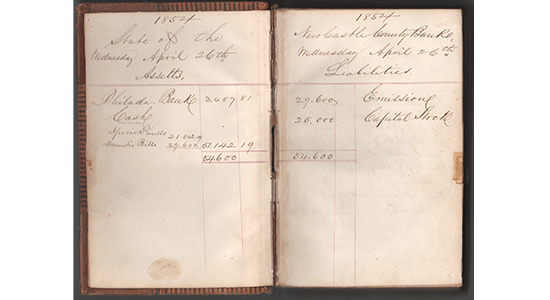 1854
State of the
Wednesday April 26th
Assetts,
Philada Bank 3.457 81
Cash
Specie Funds 21.542.19
Domestic Bills 29.600 51.142 19
54.600
1854
New Castle County Bank,
Wednesday April 26th
Liabilities
29.600 Emissions
25,000 Capital Stock
54.600